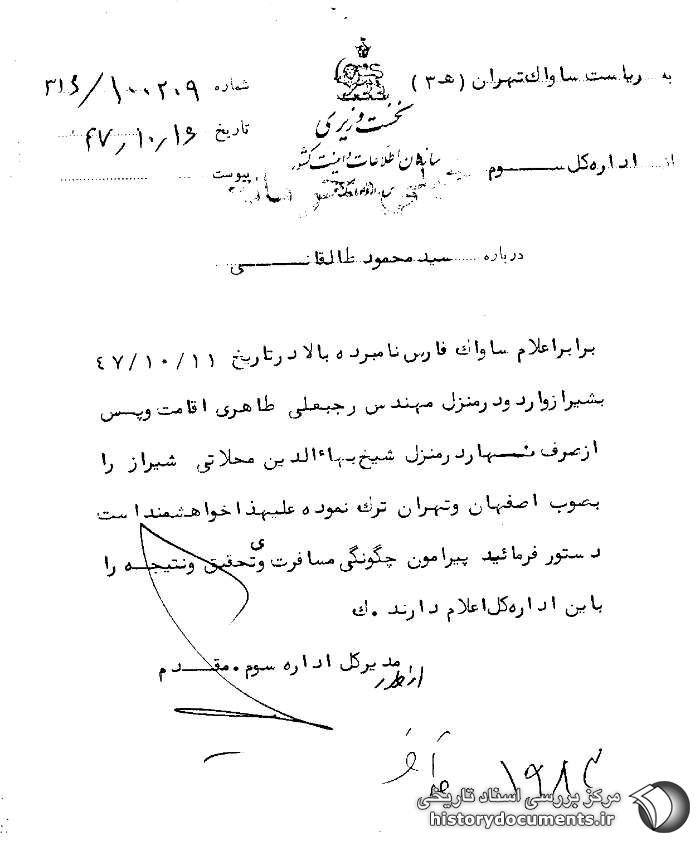 به ریاست ساواک تهران (هـ ۳)
شماره ۳۱۶/۱۰۰۲۰۹
نخست وزیری
تاریخ ۴۷/۱۰/۱۶
سازمان اطلاعات و امنیت کشور
از اداره کل سوم
پیوست
درباره سید محمود طالقانی
برابر اعلام ساواک فارس نامبرده بالا در تاریخ ۴۷/۱۰/۱۱
بشیراز وارد و در منزل مهندس رجبعلی طاهری اقامت و پس
از صرف نهار در منزل شیخ بهاءالدین محلاتی شیراز را
بصوب اصفهان و تهران ترک نموده علیهذا خواهشمند است
دستور فرمائید پیرامون چگونگی مسافرت وی تحقیق و نتیجه را
باین اداره کل اعلام دارند. ک
مدیر کل اداره سوم. مقدم
از طرف
مرکز بررسی اسناد تاریخی
historydocuments.ir